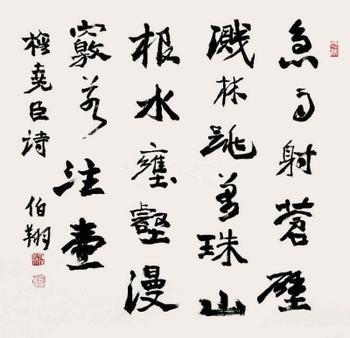 急雨射蒼壁
濺林跳萬珠山
根水壅壑漫
竅若注壺
梅堯臣詩
伯翔